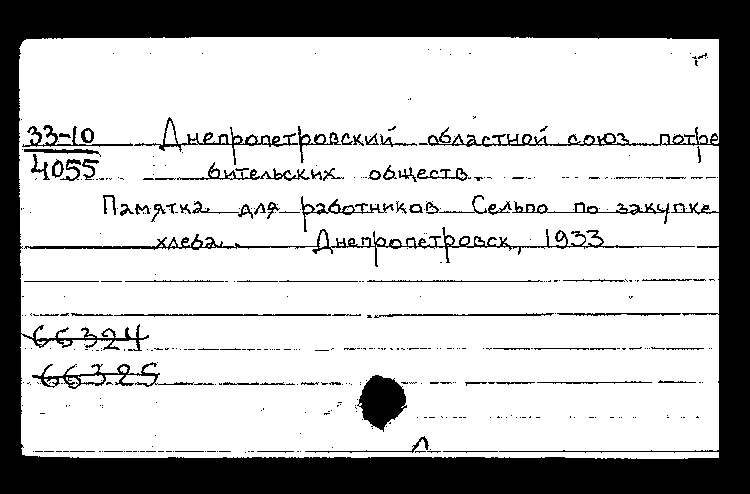 33-10 Днепропетровский областной союз потре
4055 бительских обществ.
Памятка для работников Сельпо по закупке
хлеба. Днепропетровск, 1933
66324
66325